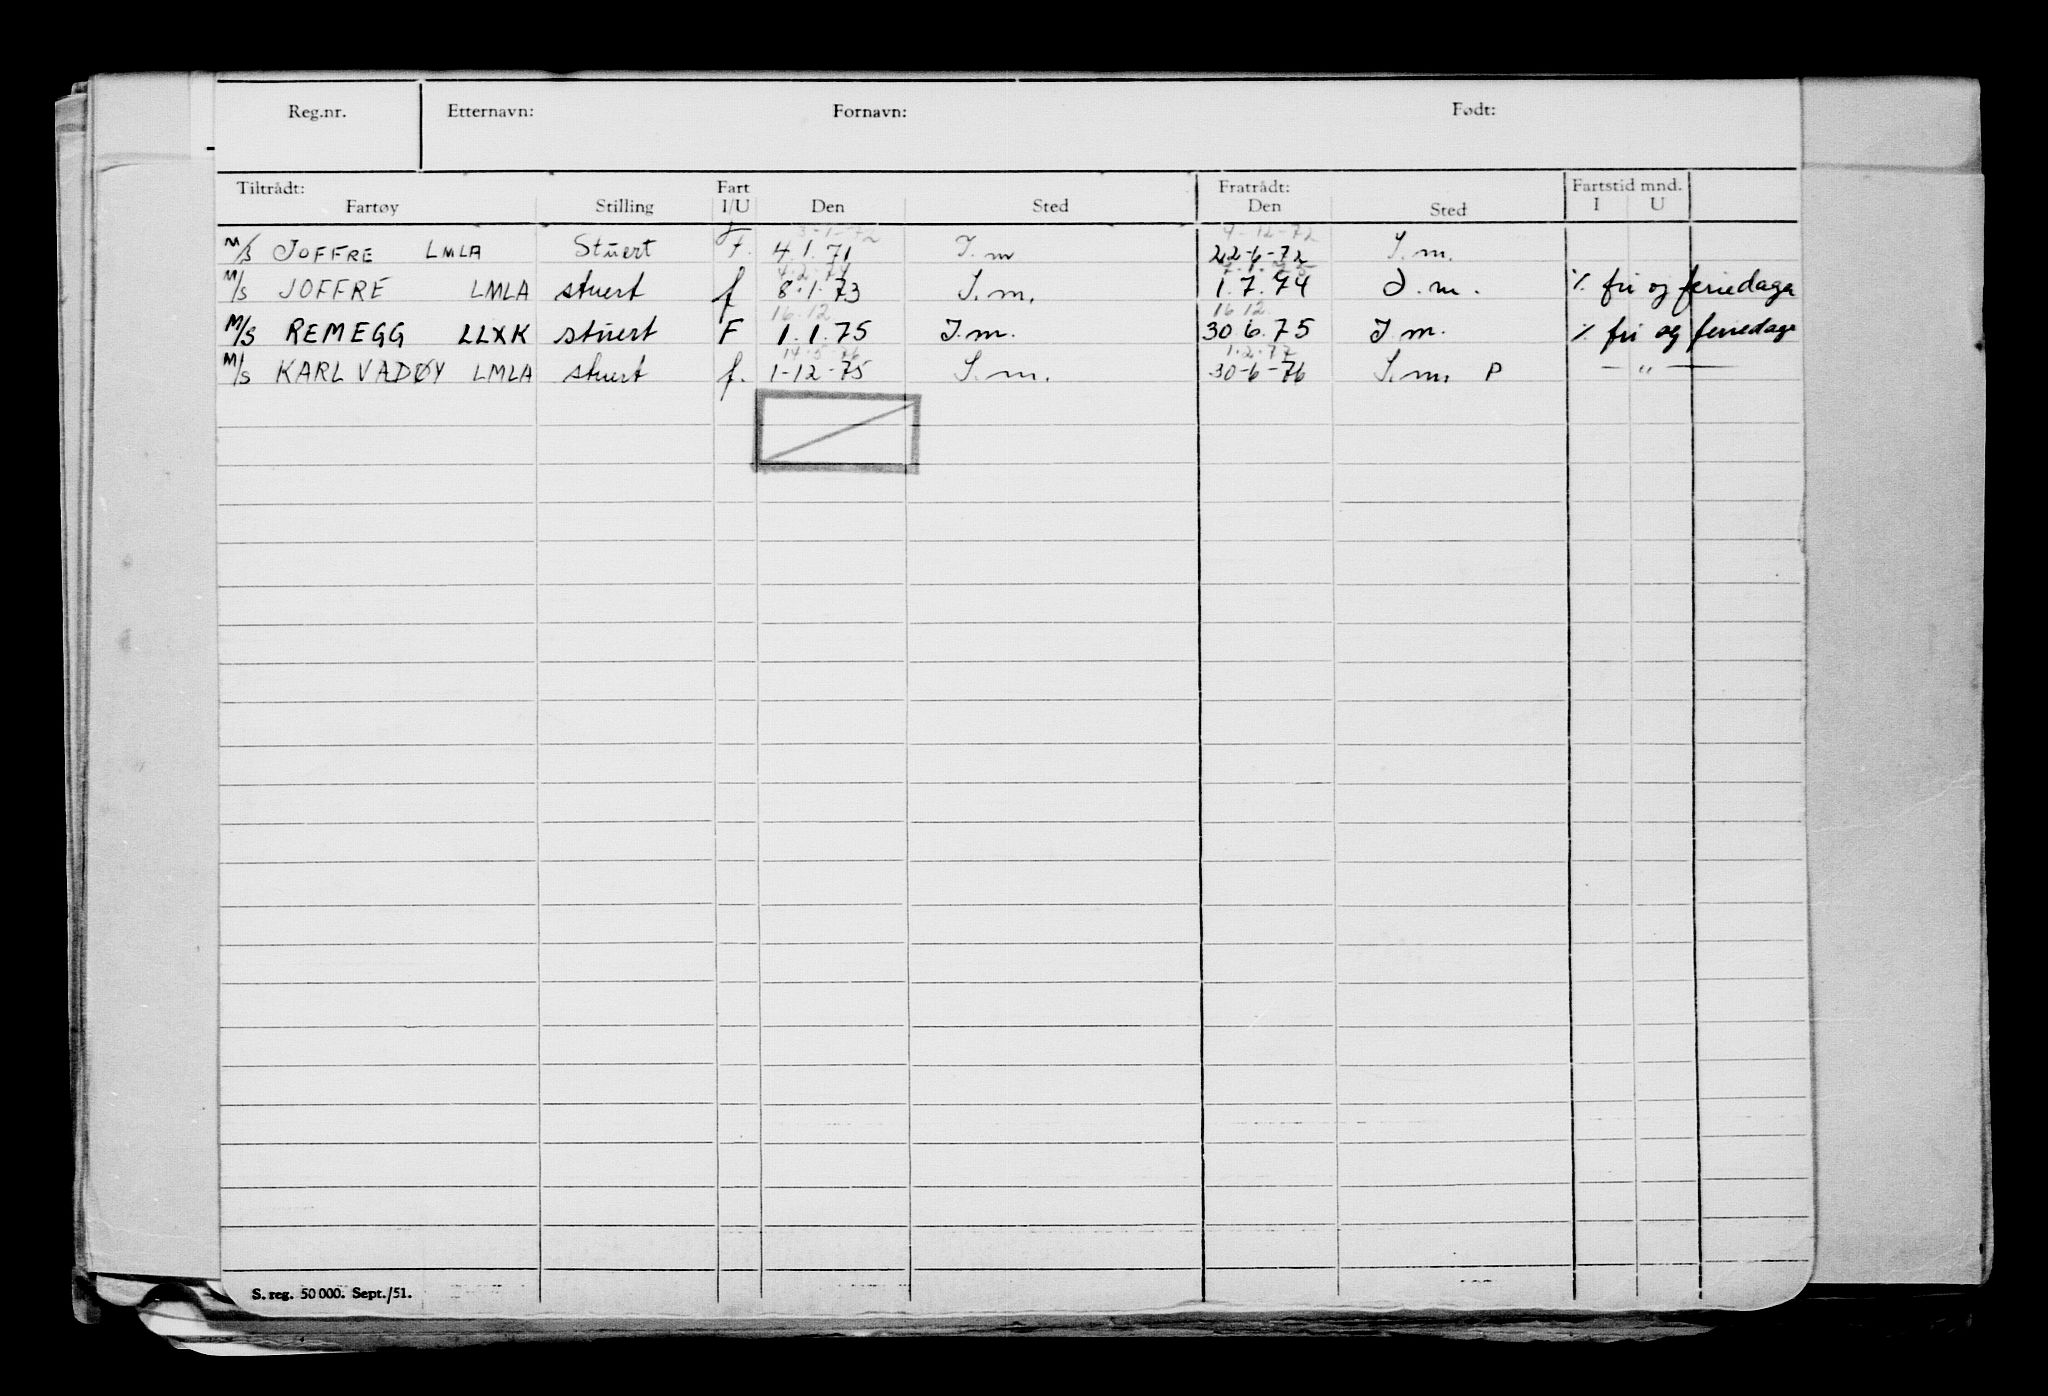 Reg.nr. Etternavn: Fornavn: Født:
Tiltrådt: Fart Fratrådt: Fartstid mnd.
Fartøy Stilling I/U Den Sted Den Sted I U
4-12-72
M/S JOFFRE LMLA Stuert F. 4.1.71 I.m 22-6-72 I.m.
4.2.74
M/S JOFFRE LMLA stuert f 8.1.73 I.m. 1.7.74 I.m. % fri og feriedager
16.12 16 12.
M/S REMEGG LLXK stuert F 1.1.75 I.m. 30 6.75 I m. % fri og feriedage
14.5.76 1.2.77
M/S KARL VADØY LMLA stuert f. 1-12-75 I.m. 30-6-76 I.m. P — " —
S. reg. 50 000. Sept./51.